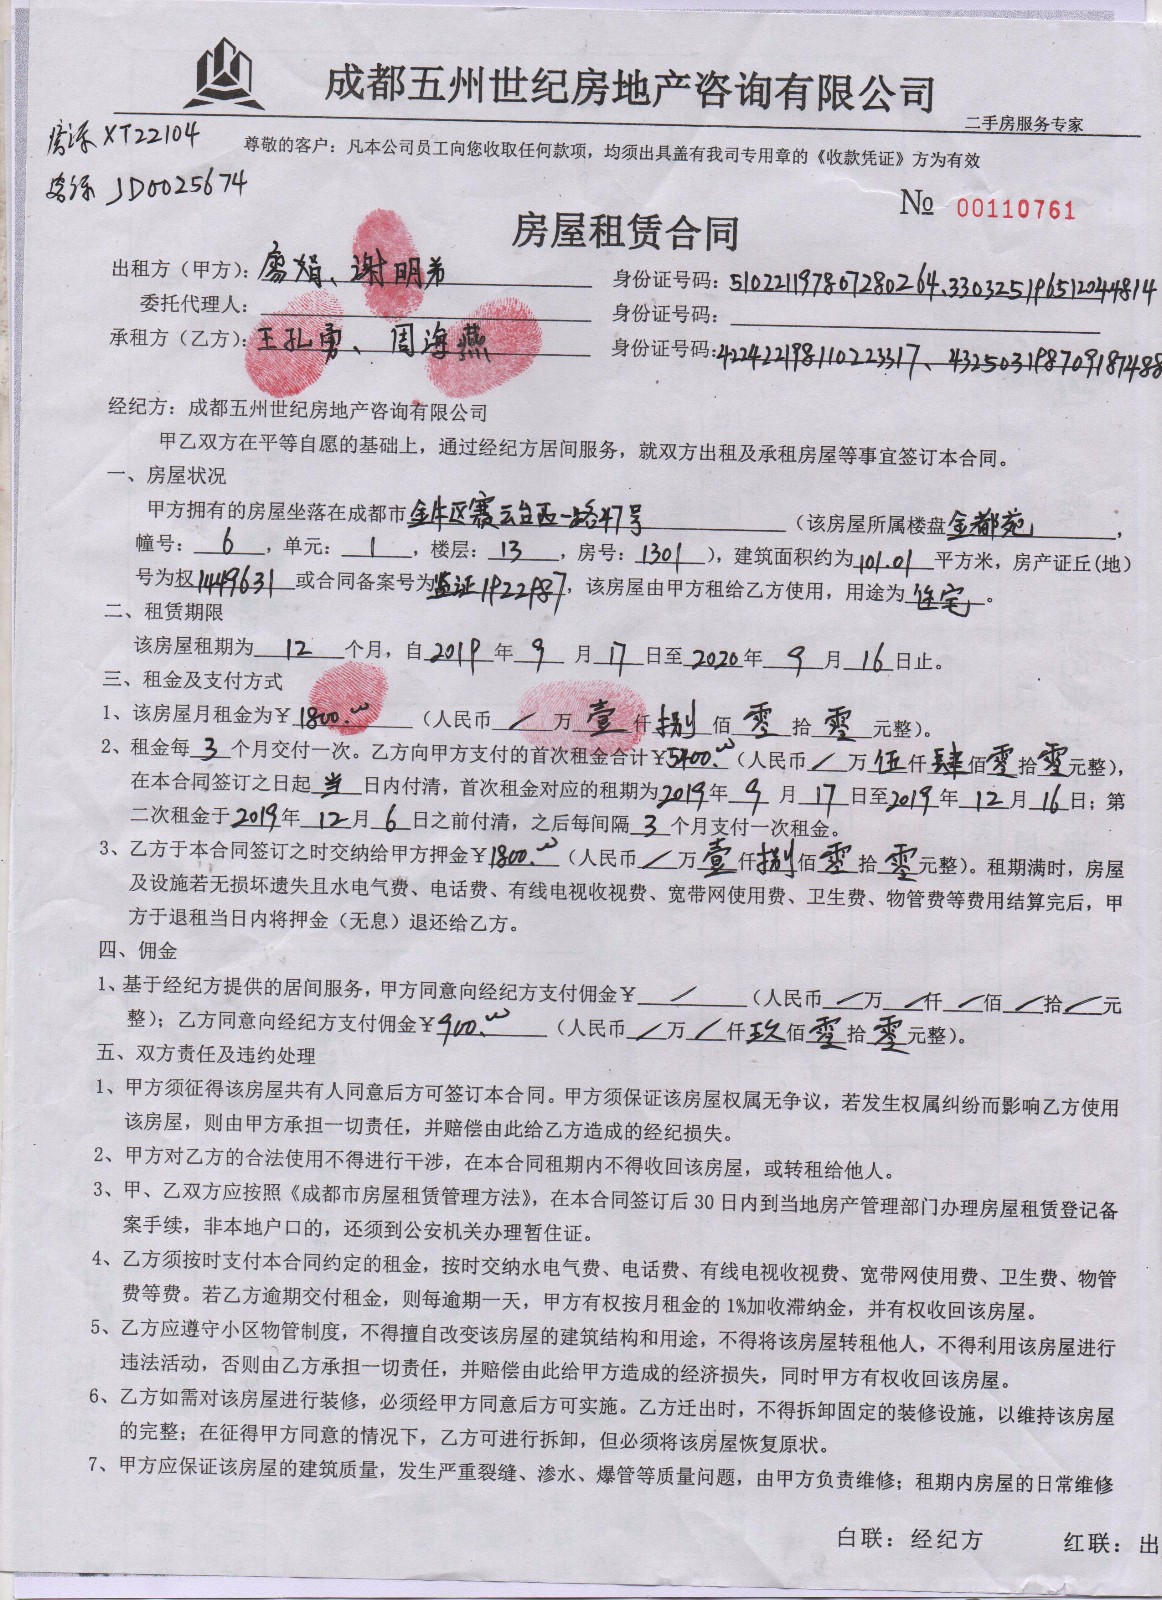 成都五州世纪房地产咨询有限公司
二手房服务专家
房源 XT22104
尊敬的客户：凡本公司员工向您收取任何款项，均须出具盖有我司专用章的《收款凭证》方为有效
客源 JD0025674
№ 00110761
房屋租赁合同
出租方（甲方）：廖娟、谢明弟 身份证号码：510221197807280264、330325196512044814
委托代理人： 身份证号码：
承租方（乙方）：王孔勇、周海燕 身份证号码：422422198110223317、432503198709187488
经纪方：成都五州世纪房地产咨询有限公司
甲乙双方在平等自愿的基础上，通过经纪方居间服务，就双方出租及承租房屋等事宜签订本合同。
一、房屋状况
甲方拥有的房屋坐落在成都市金牛区赛云台西一路47号（该房屋所属楼盘金都苑，
幢号：6，单元：1，楼层：13，房号：1301），建筑面积约为101.01平方米，房产证丘(地)
号为权1449631或合同备案号为监证1922987，该房屋由甲方租给乙方使用，用途为住宅。
二、租赁期限
该房屋租期为12个月，自2019年9月17日至2020年9月16日止。
三、租金及支付方式
1、该房屋月租金为￥1800.00（人民币/万壹仟捌佰零拾零元整）。
2、租金每3个月交付一次。乙方向甲方支付的首次租金合计￥5400.00（人民币/万伍仟肆佰零拾零元整），
在本合同签订之日起当日内付清，首次租金对应的租期为2019年9月17日至2019年12月16日；第
二次租金于2019年12月6日之前付清，之后每间隔3个月支付一次租金。
3、乙方于本合同签订之时交纳给甲方押金￥1800.00（人民币/万壹仟捌佰零拾零元整）。租期满时，房屋
及设施若无损坏遗失且水电气费、电话费、有线电视收视费、宽带网使用费、卫生费、物管费等费用结算完后，甲
方于退租当日内将押金（无息）退还给乙方。
四、佣金
1、基于经纪方提供的居间服务，甲方同意向经纪方支付佣金￥/（人民币/万/仟/佰/拾/元
整）；乙方同意向经纪方支付佣金￥900.00（人民币/万/仟玖佰零拾零元整）。
五、双方责任及违约处理
1、甲方须征得该房屋共有人同意后方可签订本合同。甲方须保证该房屋权属无争议，若发生权属纠纷而影响乙方使用
该房屋，则由甲方承担一切责任，并赔偿由此给乙方造成的经纪损失。
2、甲方对乙方的合法使用不得进行干涉，在本合同租期内不得收回该房屋，或转租给他人。
3、甲、乙双方应按照《成都市房屋租赁管理方法》，在本合同签订后30日内到当地房产管理部门办理房屋租赁登记备
案手续，非本地户口的，还须到公安机关办理暂住证。
4、乙方须按时支付本合同约定的租金，按时交纳水电气费、电话费、有线电视收视费、宽带网使用费、卫生费、物管
费等费。若乙方逾期交付租金，则每逾期一天，甲方有权按月租金的1%加收滞纳金，并有权收回该房屋。
5、乙方应遵守小区物管制度，不得擅自改变该房屋的建筑结构和用途，不得将该房屋转租他人，不得利用该房屋进行
违法活动，否则由乙方承担一切责任，并赔偿由此给甲方造成的经济损失，同时甲方有权收回该房屋。
6、乙方如需对该房屋进行装修，必须经甲方同意后方可实施。乙方迁出时，不得拆卸固定的装修设施，以维持该房屋
的完整；在征得甲方同意的情况下，乙方可进行拆卸，但必须将该房屋恢复原状。
7、甲方应保证该房屋的建筑质量，发生严重裂缝、渗水、爆管等质量问题，由甲方负责维修；租期内房屋的日常维修
白联：经纪方 红联：出